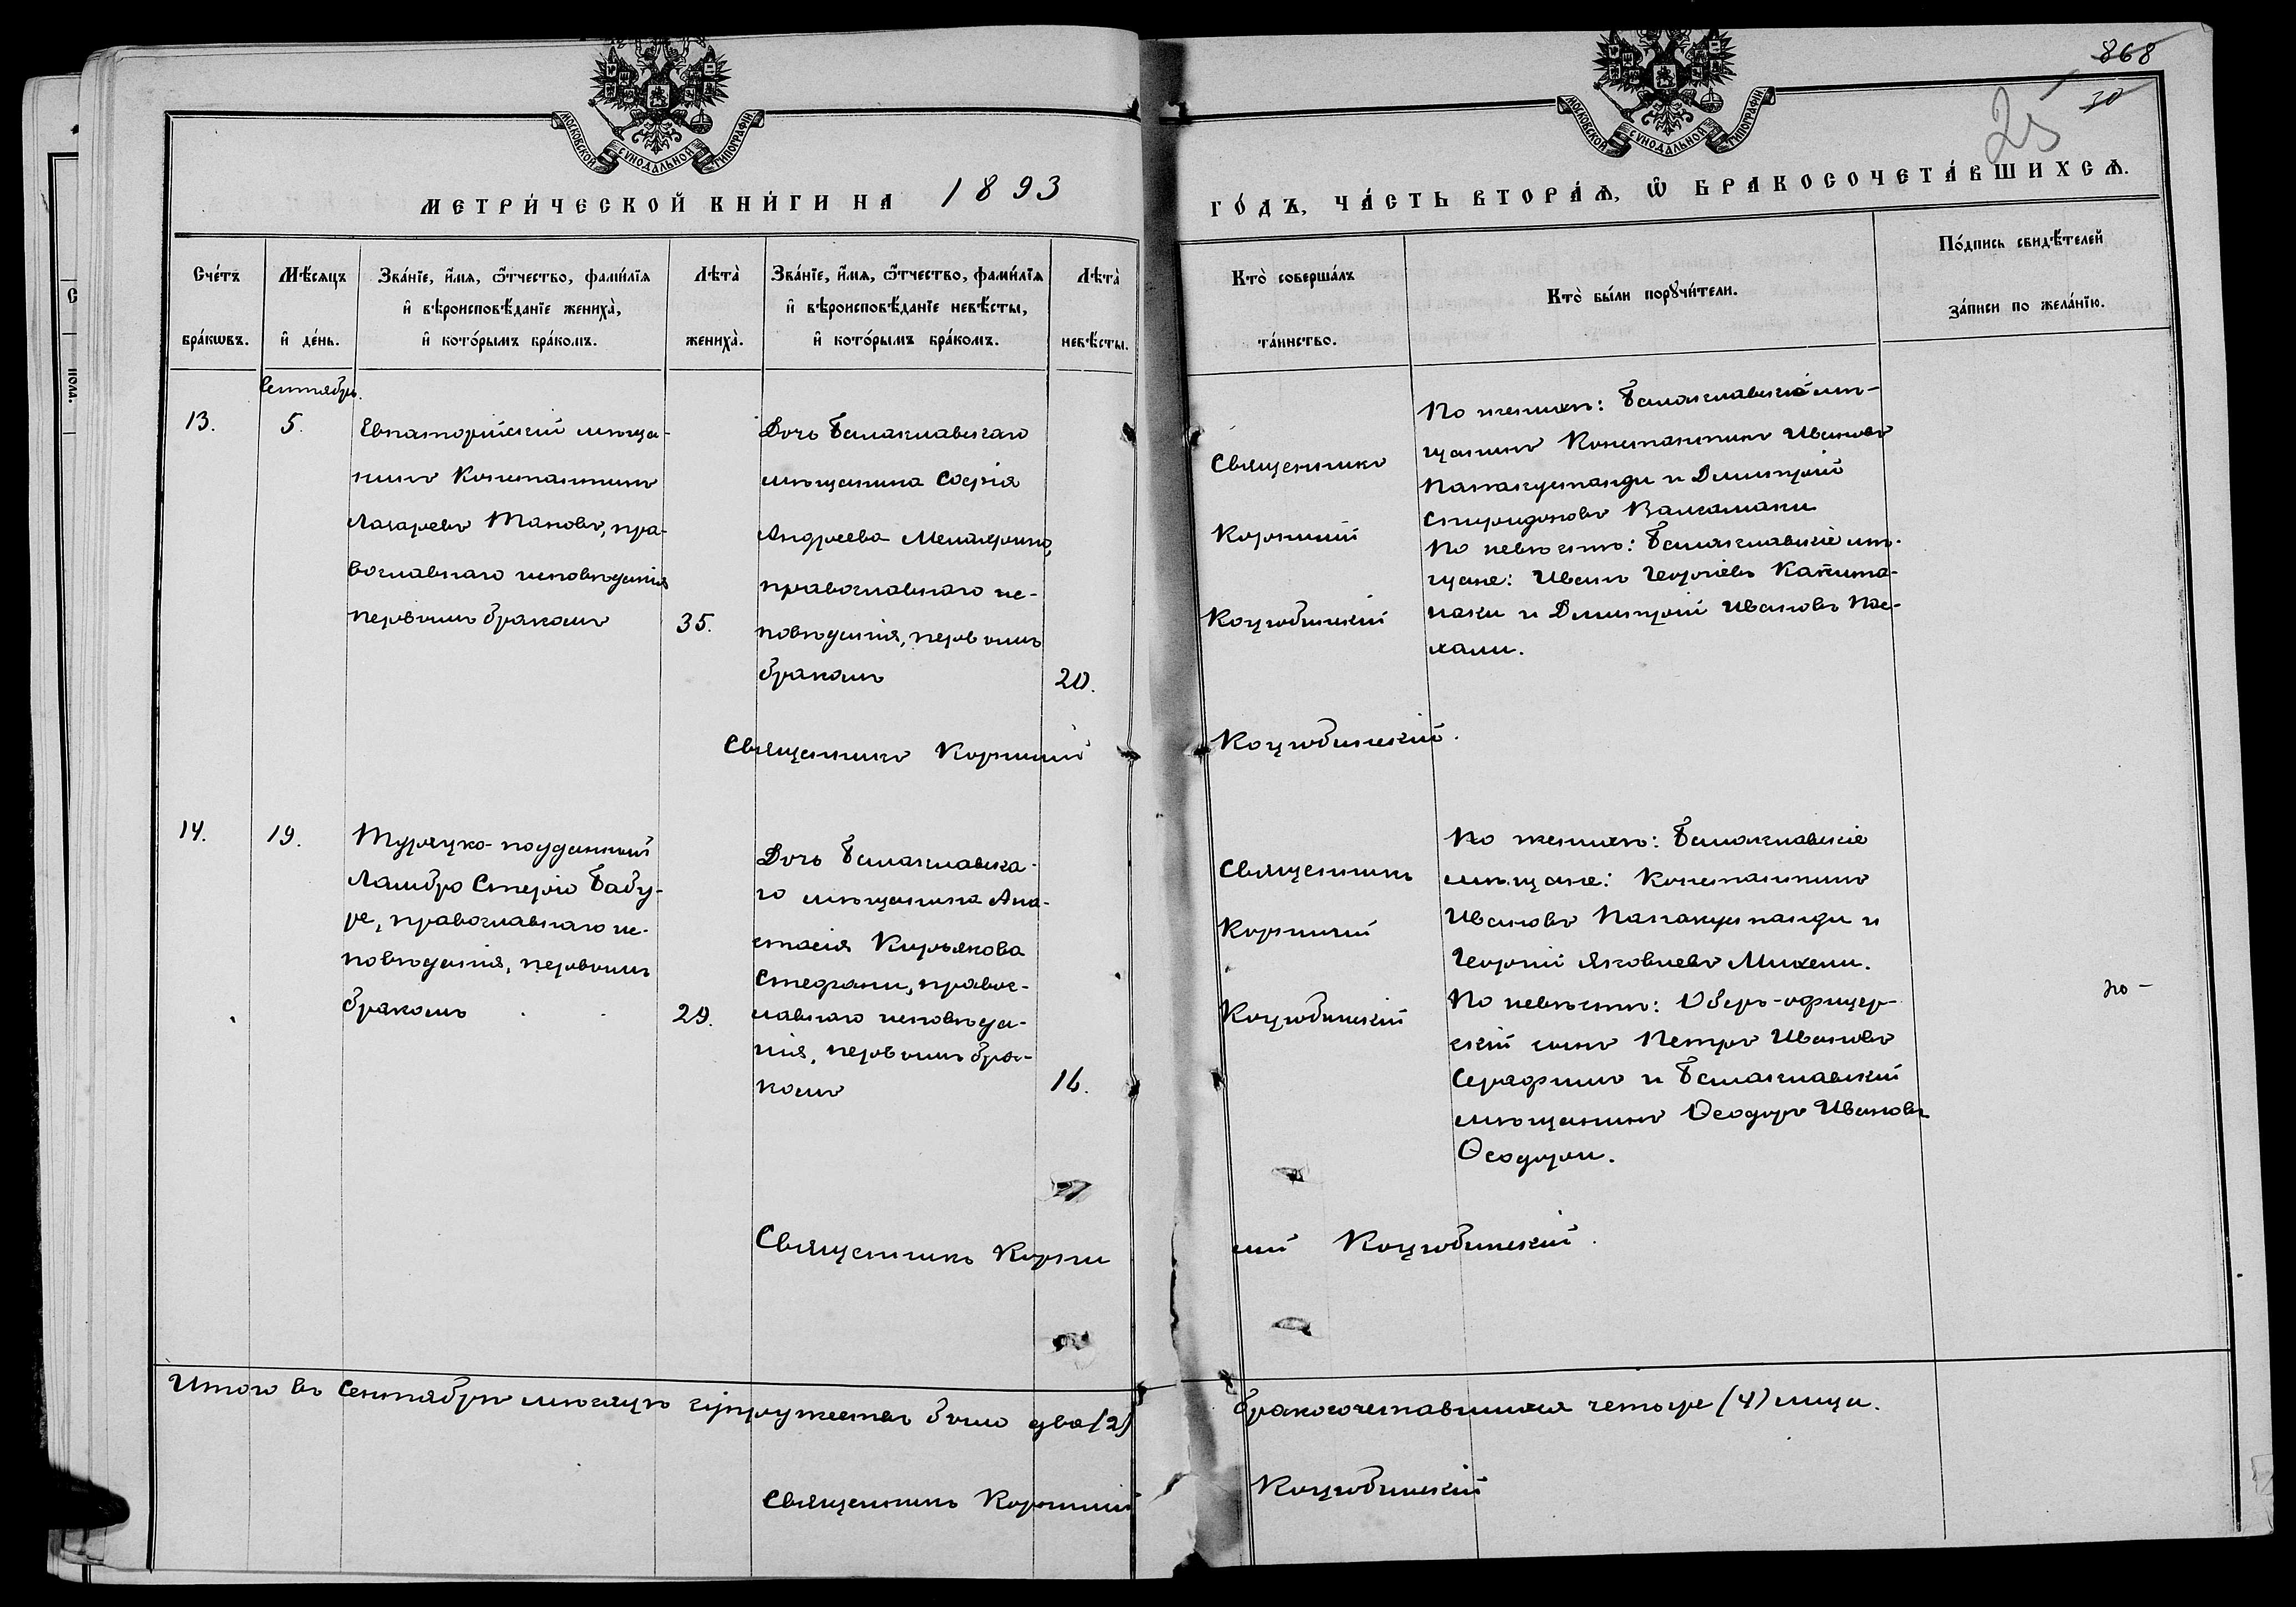 868
30
25
МОСКОВСКОЙ СѴНОДАЛЬНОЙ ТИПОГРАФІИ
МОСКОВСКОЙ СѴНОДАЛЬНОЙ ТИПОГРАФІИ
МЕТРИ́ЧЕСКОЙ КНИ́ГИ НА 1893
ГО́ДЪ, ЧА́СТЬ ВТОРА́Ѧ, Ѽ БРАКОСОЧЕТА́ВШИХСѦ.
Сче́тъ бра́кѡвъ.
Мѣ́сяцъ и҆ де́нь.
Зва́нїе, и҆́мя, ѻ҆́тчество, фами́лїя
и҆ вѣроисповѣ́данїе жениха̀,
и҆ кото́рымъ бра́комъ.
Лѣта̀ жениха̀.
Зва́нїе, и҆́мя, ѻ҆́тчество, фами́лїя
и҆ вѣроисповѣ́данїе невѣ́сты,
и҆ кото́рымъ бра́комъ.
Лѣта̀ невѣ́сты.
Кто̀ соверша́лъ
та́инство.
Кто̀ бы́ли порꙋчи́тели.
По́дпись свидѣ́телей
за́писи по жела́нїю.
Сентябрь.
13.
5.
Евпаторійскій мѣща-
нинъ Константинъ
Лазаревъ Тановъ, пра-
вославнаго исповѣданія
первымъ бракомъ
35.
Дочь Балаклавскаго
мѣщанина Софія
Андреева
православнаго ис-
повѣданія, первымъ
бракомъ
20.
Священникъ
Корнилій
Коцюбинскій
По женихѣ: Балаклавскіе мѣ-
щанинъ Константинъ Ивановъ
Папакустанди и Димитрій
Спиридоновъ Валсамаки
По невѣстѣ: Балаклавскіе мѣ-
щане: Иванъ Георгіевъ Капита-
наки и Димитрій Ивановъ Пас-
хали.
Священникъ Корнилій Коцюбинскій.
14.
19.
Турецко-подданный
Ламбро Стеріо Бабу-
ре, православнаго ис-
повѣданія, первымъ
бракомъ
29.
Дочь Балаклавска-
го мѣщанина Ана-
стасія Кирьякова
Стефани, правос-
лавнаго исповѣда-
нія, первымъ бра-
комъ
16.
Священникъ
Корнилій
Коцюбинскій
По женихѣ: Балаклавскіе
мѣщане: Константинъ
Ивановъ Папакустанди и
Георгій Яковлевъ Михели.
По невѣстѣ: Оберъ-офицер-
скій сынъ Петръ Ивановъ
Серафимъ и Балаклавскій
мѣщанинъ Ѳеодоръ Ивановъ
Ѳеодори.
Священникъ Корни
лій Коцюбинскій.
Итого въ Сентябрѣ мѣсяцѣ супружествъ было два (2) бракосочетавшихся четыре (4) лица.
Священникъ Корнилій Коцюбинскій